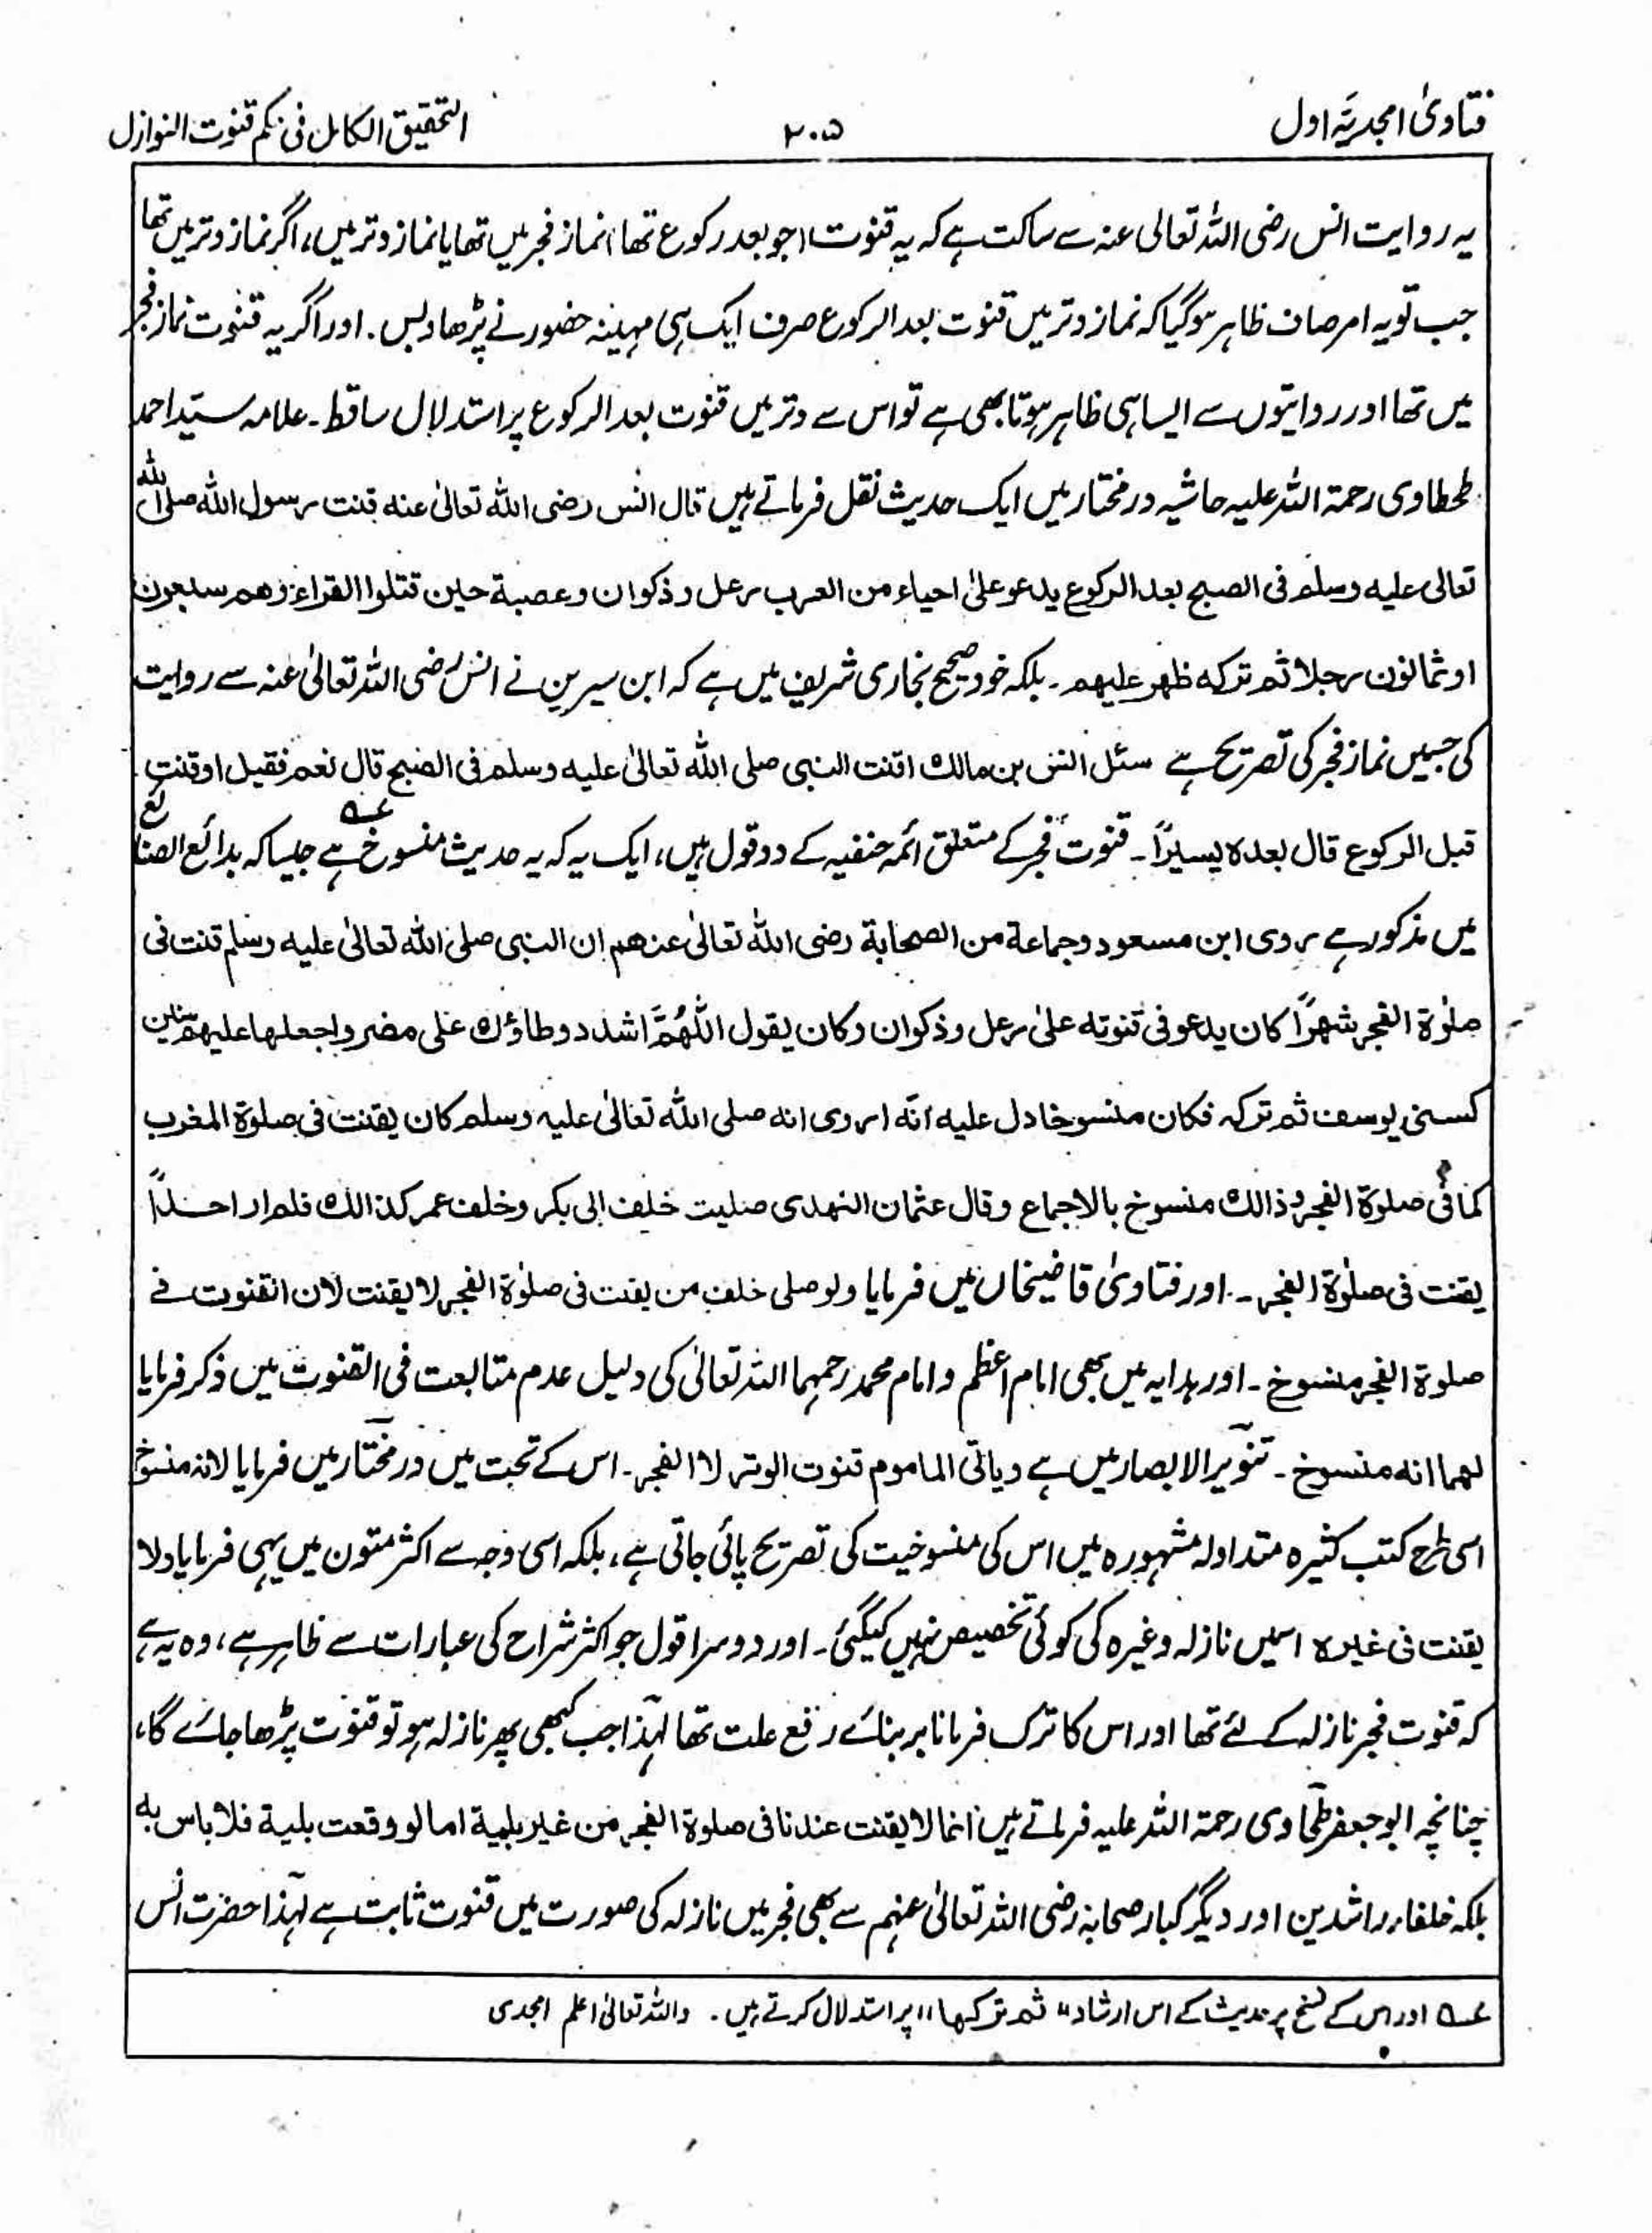 فتاویٰ امجدیہ اول
۲۰۵
التحقیق الکامل فی حکم قنوت النوازل
یہ روایت انس رضی اللہ تعالی عنہ سے ساکت ہے کہ یہ قنوت (جو بعد رکوع تھا) نماز فجر میں تھا یا نماز وتر میں، اگر نماز وتر میں تھا
جب تو یہ امر صاف ظاہر ہو گیا کہ نماز وتر میں قنوت بعد الرکوع صرف ایک ہی مہینہ حضور نے پڑھا وبس. اور اگر یہ قنوت نماز فجر
میں تھا اور روایتوں سے ایسا ہی ظاہر ہوتا بھی ہے تو اس سے وتر میں قنوت بعد الرکوع پر استدلال ساقط۔ علامہ سید احمد
طحطاوی رحمۃ اللہ علیہ حاشیہ در مختار میں ایک حدیث نقل فرماتے ہیں قال انس رضی اللہ تعالیٰ عنه قنت رسول اللہ صلی اللہ
تعالی علیه وسلم فی الصبح بعد الرکوع یدعو علیٰ احیاء من العرب رعل و ذکوان و عصیة حین قتلوا القراء وهم سبعون
او ثمانون رجلا ثم ترکه ظهر علیهم ۔ بلکہ خود صحیح بخاری شریف میں ہے کہ ابن سیرین نے انس رضی اللہ تعالیٰ عنہ سے روایت
کی جسمیں نماز فجر کی تصریح ہے سئل انس بن مالك اقنت النبی صلی اللہ تعالیٰ علیه وسلم فی الصبح قال نعم فقیل اوقنت
قبل الرکوع قال بعده یسیراً ۔ قنوت فجر کے متعلق ائمہ حنفیہ کے دو قول ہیں، ایک یہ کہ یہ حدیث منسوخ عہ ہے جیسا کہ بدائع الصنائع
میں مذکور ہے روی ابن مسعود وجماعة من الصحابة رضی اللہ تعالیٰ عنهم ان النبی صلی اللہ تعالیٰ علیه وسلم قنت فی
صلوٰة الفجر شهراً کان یدعو فی قنوته علیٰ رعل و ذکوان وکان یقول اللّٰهُمَّ اشدد وطاؤتك علی مضر واجعلها علیهم سنین
کسنی یوسف ثم ترکه فکان منسوخا دل علیه انّه روی انه صلی اللہ تعالیٰ علیه وسلم کان یقنت فی صلوٰة المغرب
کما فی صلوة الفجر وذالك منسوخ بالاجماع وقال عثمان النهدی صلیت خلف ابی بکر وخلف عمر کذالك فلم ار احداً
یقنت فی صلوٰة الفجر ۔ اور فتاویٰ قاضیخاں میں فرمایا ولو صلی خلف من یقنت فی صلوٰة الفجر لا یقنت لان القنوت فے
صلوة الفجر منسوخ ۔ اور ہدایہ میں بھی امام اعظم و امام محمد رحمہما اللہ تعالیٰ کی دلیل عدم متابعت فی القنوت میں ذکر فرمایا
لهما انه منسوخ ۔ تنویر الابصار میں ہے ویاتی الماموم قنوت الوتر لا الفجر ۔ اس کے تحت میں در مختار میں فرمایا لانه منسوخ
اسی طرح کتب کثیرہ متداولہ مشہورہ میں اس کی منسوخیت کی تصریح پائی جاتی ہے، بلکہ اسی وجہ سے اکثر متون میں یہی فرمایا ولا
یقنت فی غیره اسمیں نازلہ وغیرہ کی کوئی تخصیص نہیں کیگئی۔ اور دوسرا قول جو اکثر شراح کی عبارات سے ظاہر ہے، وہ یہ ہے
کہ قنوت فجر نازلہ کے لئے تھا اور اس کا ترک فرمانا بر بنائے رفع علت تھا لہٰذا جب کبھی پھر نازلہ ہو تو قنوت پڑھا جائے گا،
چنانچہ ابو جعفر طحاوی رحمۃ اللہ علیہ فرماتے ہیں انما لا یقنت عندنا فی صلوة الفجر من غیر بلیة اما لو وقعت بلیة فلا باس به
بلکہ خلفاء راشدین اور دیگر کبار صحابہ رضی اللہ تعالیٰ عنہم سے بھی فجر میں نازلہ کی صورت میں قنوت ثابت ہے لہٰذا حضرت انس
عہ اور اس کے نسخ پر حدیث کے اس ارشاد "ثم ترکها" پر استدلال کرتے ہیں. واللہ تعالیٰ اعلم امجدی